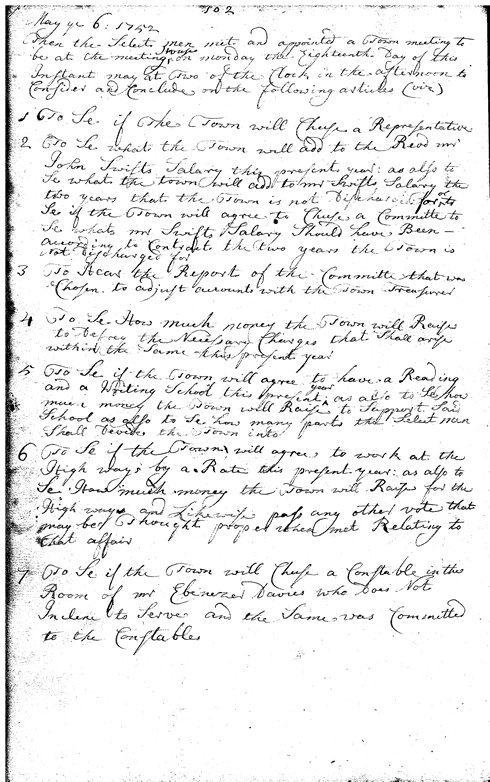 102
May ye 6: 1752
Then the Select men met and appointed a Town meeting to
be at the meeting House on monday the Eighteenth Day of this
Instant may at Two of the Clock in the afternoon to
Consider and Conclude on the following articles (viz)
1 To Se if the Town will Chuse a Representative
2 To Se what the Town will add to the Revd mr
John Swifts Salary this present year: as also to
Se what the town will add to mr Swifts Salary the
two years that the Town is not Discharged for or to
Se if the Town will agree to Chuse a Committe to
Se whats mr Swifts Salary Should have Been –
according to Contract the two years the Town is
Not Discharged for
3 To Hear the Report of the Committe that was
Chosen to adjust accounts with the Town Treasurer
4 To Se How much money the Town will Raise
to Defrey the Necessary Charges that Shall arise
within the Same this present year
5 To Se if the Town will agree to have a Reading
and a Writing School this present year as also to Se how
much money the Town will Raise to Support Said
School as also to Se how many parts the Select men
Shall Devide the Town into
6 To Se if the Town will agree to work at the
High ways by a Rate this present year: as also to
Se How much money the Town will Raise for the
High ways and Likewise pass any other vote that
may be Thought proper when met Relating to
that affair
7 To Se if the Town will Chuse a Constable in the
Room of mr Ebenezer Davies who Does Not
Inclene to Serve and the Same was Committed
to the Constables